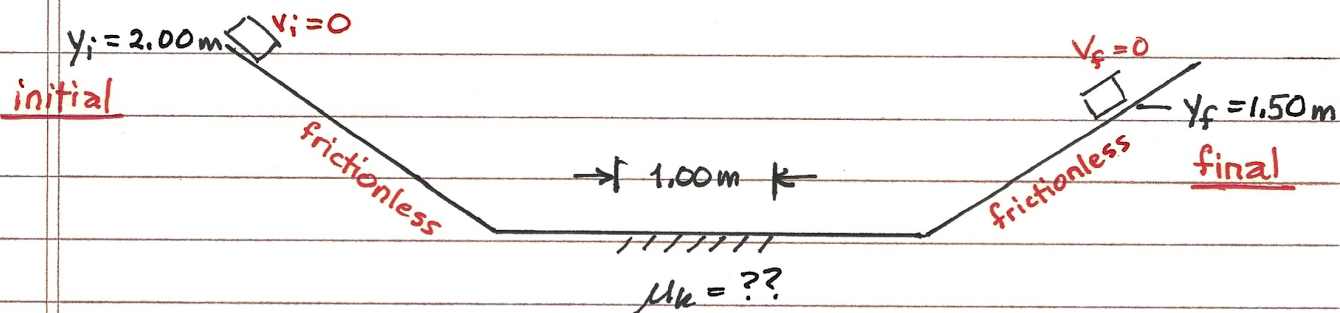 yᵢ = 2.00 m
vᵢ = 0
initial
frictionless
→| 1.00 m |←
μₖ = ??
frictionless
v_f = 0
y_f = 1.50 m
final